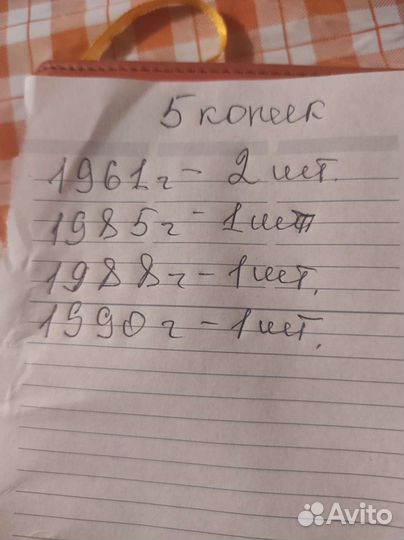 5 копеек
1961г - 2 шт.
1985г - 1 шт
1988г - 1 шт.
1990г - 1 шт.
Avito